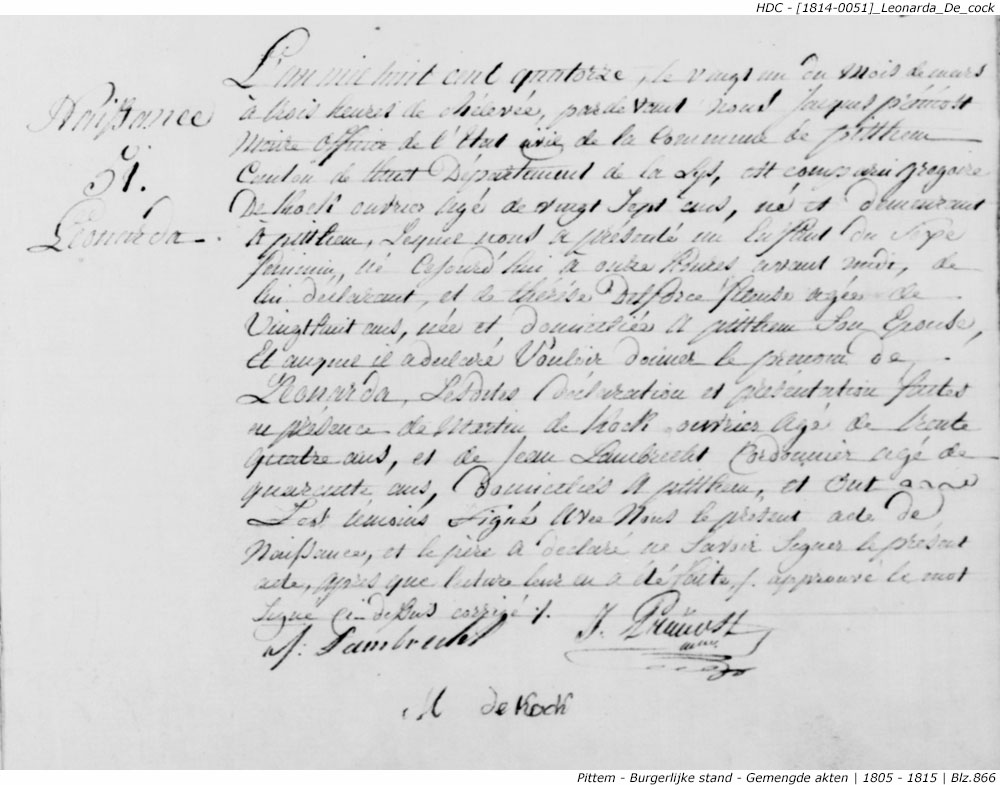 HDC - [1814-0051]_Leonarda_De_cock
L'an mie huit cent quatorze, le vingt un du mois de mars
à trois heures de rélevée, pardevant nous Jacques prévost
Maire Officier de l'Etat civil de la Commune de pitthem
Canton de thielt Département de la Lys, est comparu gregoire
De Kock ouvrier agé de vingt Sept ans, né et demeurant
A pitthem, Lequel nous a présenté un Enfant du Sexe
feminin, né Cejourd'hui à onze heures avant midi, de
lui déclarant, et de thérése fileuse agée de
Vingthuit ans, née et domiciliée A pitthem Son Epouse,
Et auquel il a déclaré Vouloir donner le prenom de
Leonarda, Lesdites déclaration et présentation faites
en présence de Martin de Kock ouvrier agé de trente
quatre ans, et de Jean Lambrecht Cordonnier agé de
quarente ans, Domiciliés A pitthem, et Ont
témoins Signé Avec Nous le présent acte de
Naissance, et le père a déclaré ne Savoir Signer le présent
acte, Après que lecture leur en a été faite /. approuvé le mot
Signé Ci-dessus corrigé /.
Naissance
51.
Léonarda
J: Lambrecht
J. Prévost
maire
M de Kock
Pittem - Burgerlijke stand - Gemengde akten | 1805 - 1815 | Blz.866